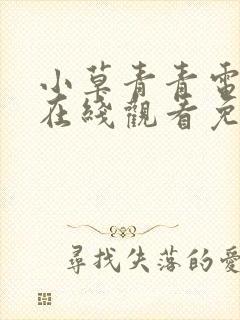 小草青青電
在綫觀看免
尋找失落的愛